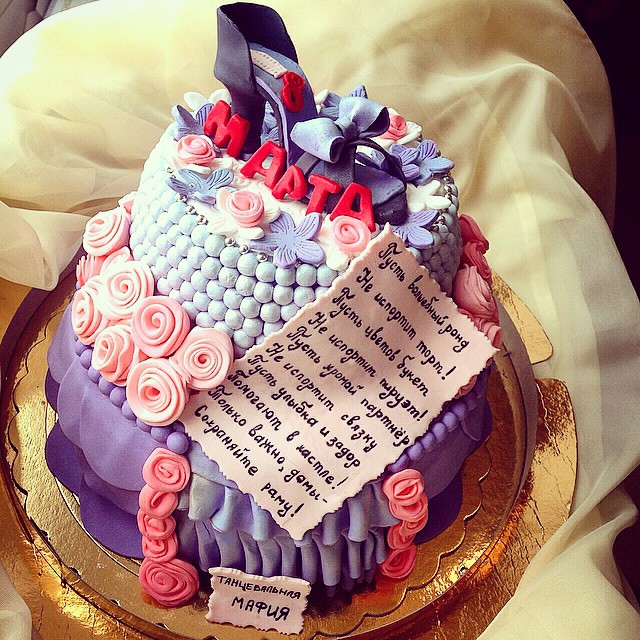 8
МАРТА
Пусть волшебный ронд
Не испортит торт!
Пусть цветов букет
Не испортит пируэт!
Пусть чужой партнёр
Не испортит связку
Пусть улыбка и задор
Помогают в кастле!
Только важно, дамы-
Сохраняйте раму!
ТАНЦЕВАЛЬНАЯ
МАФИЯ